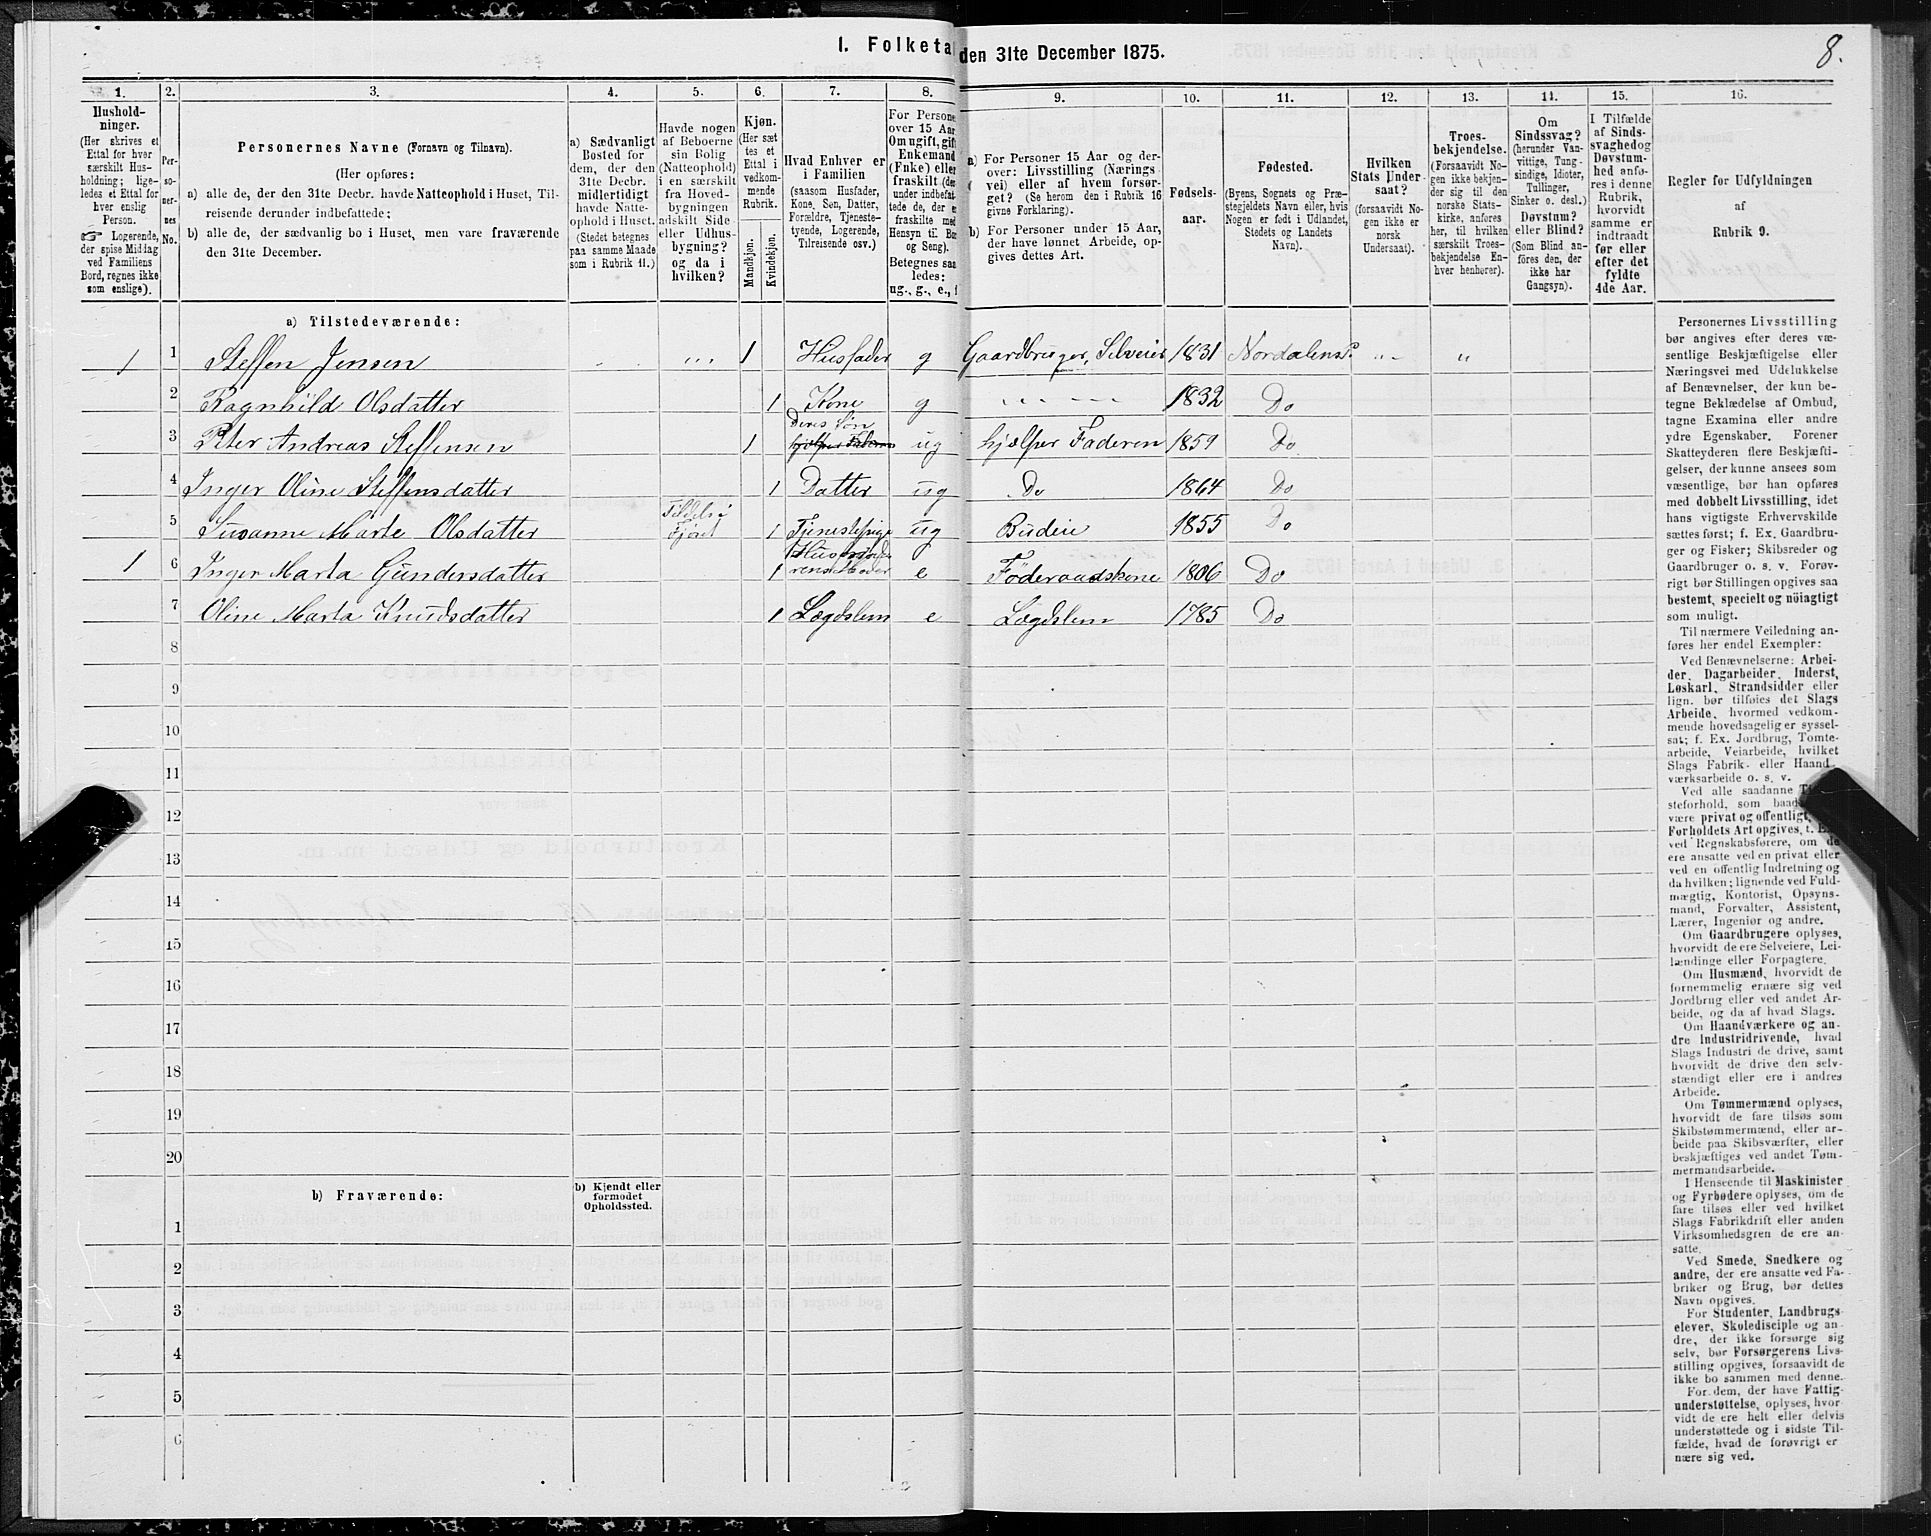 8.
1. Folketal den 31te December 1875.
1.
2.
3.
4.
5.
6.
7.
8.
9.
10.
11.
12.
13.
14.
15.
16.
Hushold-
ninger.
(Her skrives et
Ettal for hver
særskilt Hus-
holdning; lige-
ledes et Ettal for
hver enslig
Person.
☞ Logerende,
der spise Middag
ved Familiens
Bord, regnes ikke
som enslige).
Per-
so-
ner-
nes
No.
Personernes Navne (Fornavn og Tilnavn).
(Her opføres:
a) alle de, der den 31te Decbr. havde Natteophold i Huset, Til-
reisende derunder indbefattede;
b) alle de, der sædvanlig bo i Huset, men vare fraværende
den 31te December.
a) Sædvanligt
Bosted for
dem, der den
31te Decbr.
midlertidigt
havde Natte-
ophold i Huset.
(Stedet betegnes
paa samme Maade
som i Rubrik 11.)
Havde nogen
af Beboerne
sin Bolig
(Natteophold)
i en særskilt
fra Hoved-
bygningen
adskilt Side-
eller Udhus-
bygning?
og da i
hvilken?
Kjøn.
(Her sæt-
tes et
Ettal i
vedkom-
mende
Rubrik.
Mandkjøn.
Kvindekjøn.
Hvad Enhver er
i Familien
(saasom Husfader,
Kone, Søn, Datter,
Forældre, Tjeneste-
tyende, Logerende,
Tilreisende osv.)
For Persone
over 15 Aar
Om ugift, gift
Enkemand
(Enke) eller
fraskilt (der-
under indbefat-
tede de, der e
fraskilte med
Hensyn til Bo
og Seng).
Betegnes saa-
ledes:
ug., g., e., f
a) For Personer 15 Aar og der-
over: Livsstilling (Nærings-
vei) eller af hvem forsør-
get? (Se herom den i Rubrik 16
givne Forklaring).
b) For Personer under 15 Aar,
der have lønnet Arbeide, op-
gives dettes Art.
Fødsels-
aar.
Fødested.
(Byens, Sognets og Præ-
stegjeldets Navn eller, hvis
Nogen er født i Udlandet,
Stedets og Landets
Navn).
Hvilken
Stats Under-
saat?
(forsaavidt No-
gen ikke er
norsk
Undersaat).
Troes-
bekjendelse.
(Forsaavidt No-
gen ikke bekjen-
der sig til den
norske Stats-
kirke, anføres
her, til hvilken
særskilt Troes-
bekjendelse En-
hver henhører).
Om
Sindssvag?
(herunder Van-
vittige, Tung-
sindige, Idioter,
Tullinger,
Sinker o. desl.)
Døvstum?
eller Blind?
(Som Blind an-
føres den, der
ikke har
Gangsyn).
I Tilfælde
af Sinds-
svaghed og
Døvstum-
hed anfø-
res i denne
Rubrik,
hvorvidt
samme er
indtraadt
før eller
efter det
fyldte
4de Aar.
Regler for Udfyldningen
af
Rubrik 9.
a) Tilstedeværende:
1 1 Steffen Jensen „ 1 Husfader g Gaardbruger, Selveier 1831 Nordalens P. „ „
2 Ragnhild Olsdatter 1 Kone g „ „ „ 1832 Do
Deres Søn
3 Peter Andreas Steffensen 1 hjælper Faderen ug hjælper Faderen 1859 Do
4 Inger Oline Steffensdatter 1 Datter ug Do 1864 Do
5 Susanne Marte Olsdatter Tildels i Fjøset 1 Tjenestepige ug Budeie 1855 Do
1 6 Inger Marta Gundersdatter 1 Husfade- rens Moder e Föderaadskone 1806 Do
7 Oline Marta Knudsdatter 1 Lægdslem e Lægdslem 1785 Do
8
9
10
11
12
13
14
15
16
17
18
19
20
b) Fraværende:
b) Kjendt eller
formodet
Opholdssted.
1
2
3
4
5
6
Personernes Livsstilling
bør angives efter deres væ-
sentlige Beskjæftigelse eller
Næringsvei med Udelukkelse
af Benævnelser, der kun be-
tegne Beklædelse af Ombud,
tagne Examina eller andre
ydre Egenskaber. Forener
Skatteyderen flere Beskjæfti-
gelser, der kunne ansees som
væsentlige, bør han opføres
med dobbelt Livsstilling, idet
hans vigtigste Erhvervskilde
sættes først; f. Ex. Gaardbru-
ger og Fisker; Skibsreder og
Gaardbruger o. s. v. Forøv-
rigt bør Stillingen opgives saa
bestemt, specielt og nöiagtigt
som muligt.
Til nærmere Veiledning an-
føres her endel Exempler:
Ved Benævnelserne: Arbei-
der, Dagarbeider, Inderst,
Løskarl, Strandsidder eller
lign. bør tilføies det Slags
Arbeide, hvormed vedkom-
mende hovedsagelig er syssel-
sat; f. Ex. Jordbrug, Tomte-
arbeide, Veiarbeide, hvilket
Slags Fabrik- eller Haand-
værksarbeide o. s. v.
Ved alle saadanne
steforhold, som
være privat og offentligt,
Forholdets Art opgives, f. Ex.
ved Regnskabsførere, om de
ere ansatte ved en privat eller
ved en offentlig Indretning og
da hvilken; lignende ved Fuld-
mægtig, Kontorist, Opsyns-
mand, Forvalter, Assistent,
Lærer, Ingeniør og andre.
Om Gaardbrugere oplyses,
hvorvidt de ere Selveiere, Lei-
lændinge eller Forpagtere.
Om Husmænd, hvorvidt de
fornemmelig ernære sig ved
Jordbrug eller ved andet Ar-
beide, og da af hvad Slags.
Om Haandværkere og an-
dre Industridrivende, hvad
Slags Industri de drive, samt
hvorvidt de drive den selv-
stændigt eller ere i andres
Arbeide.
Om Tømmermænd oplyses,
hvorvidt de fare tilsøs som
Skibstømmermænd, eller ar-
beide paa Skibsværfter, eller
beskjæftiges ved andet Tøm-
mermandsarbeide.
I Henseende til Maskinister
og Fyrbødere oplyses, om de
fare tilsøs eller ved hvilket
Slags Fabrikdrift eller anden
Virksomhedsgren de ere an-
satte.
Ved Smede, Snedkere og
andre, der ere ansatte ved Fa-
briker og Brug, bør dettes
Navn opgives.
For Studenter, Landbrugs-
elever, Skoledisciple og an-
dre, der ikke forsørge sig
selv, bør Forsørgerens Livs-
stilling opgives, forsaavidt de
ikke bo sammen med denne.
For dem, der have Fattig-
understøttelse, oplyses, hvor-
vidt de ere helt eller delvis
understøttede og i sidste Til-
fælde, hvad de forøvrigt er
nære sig ved.